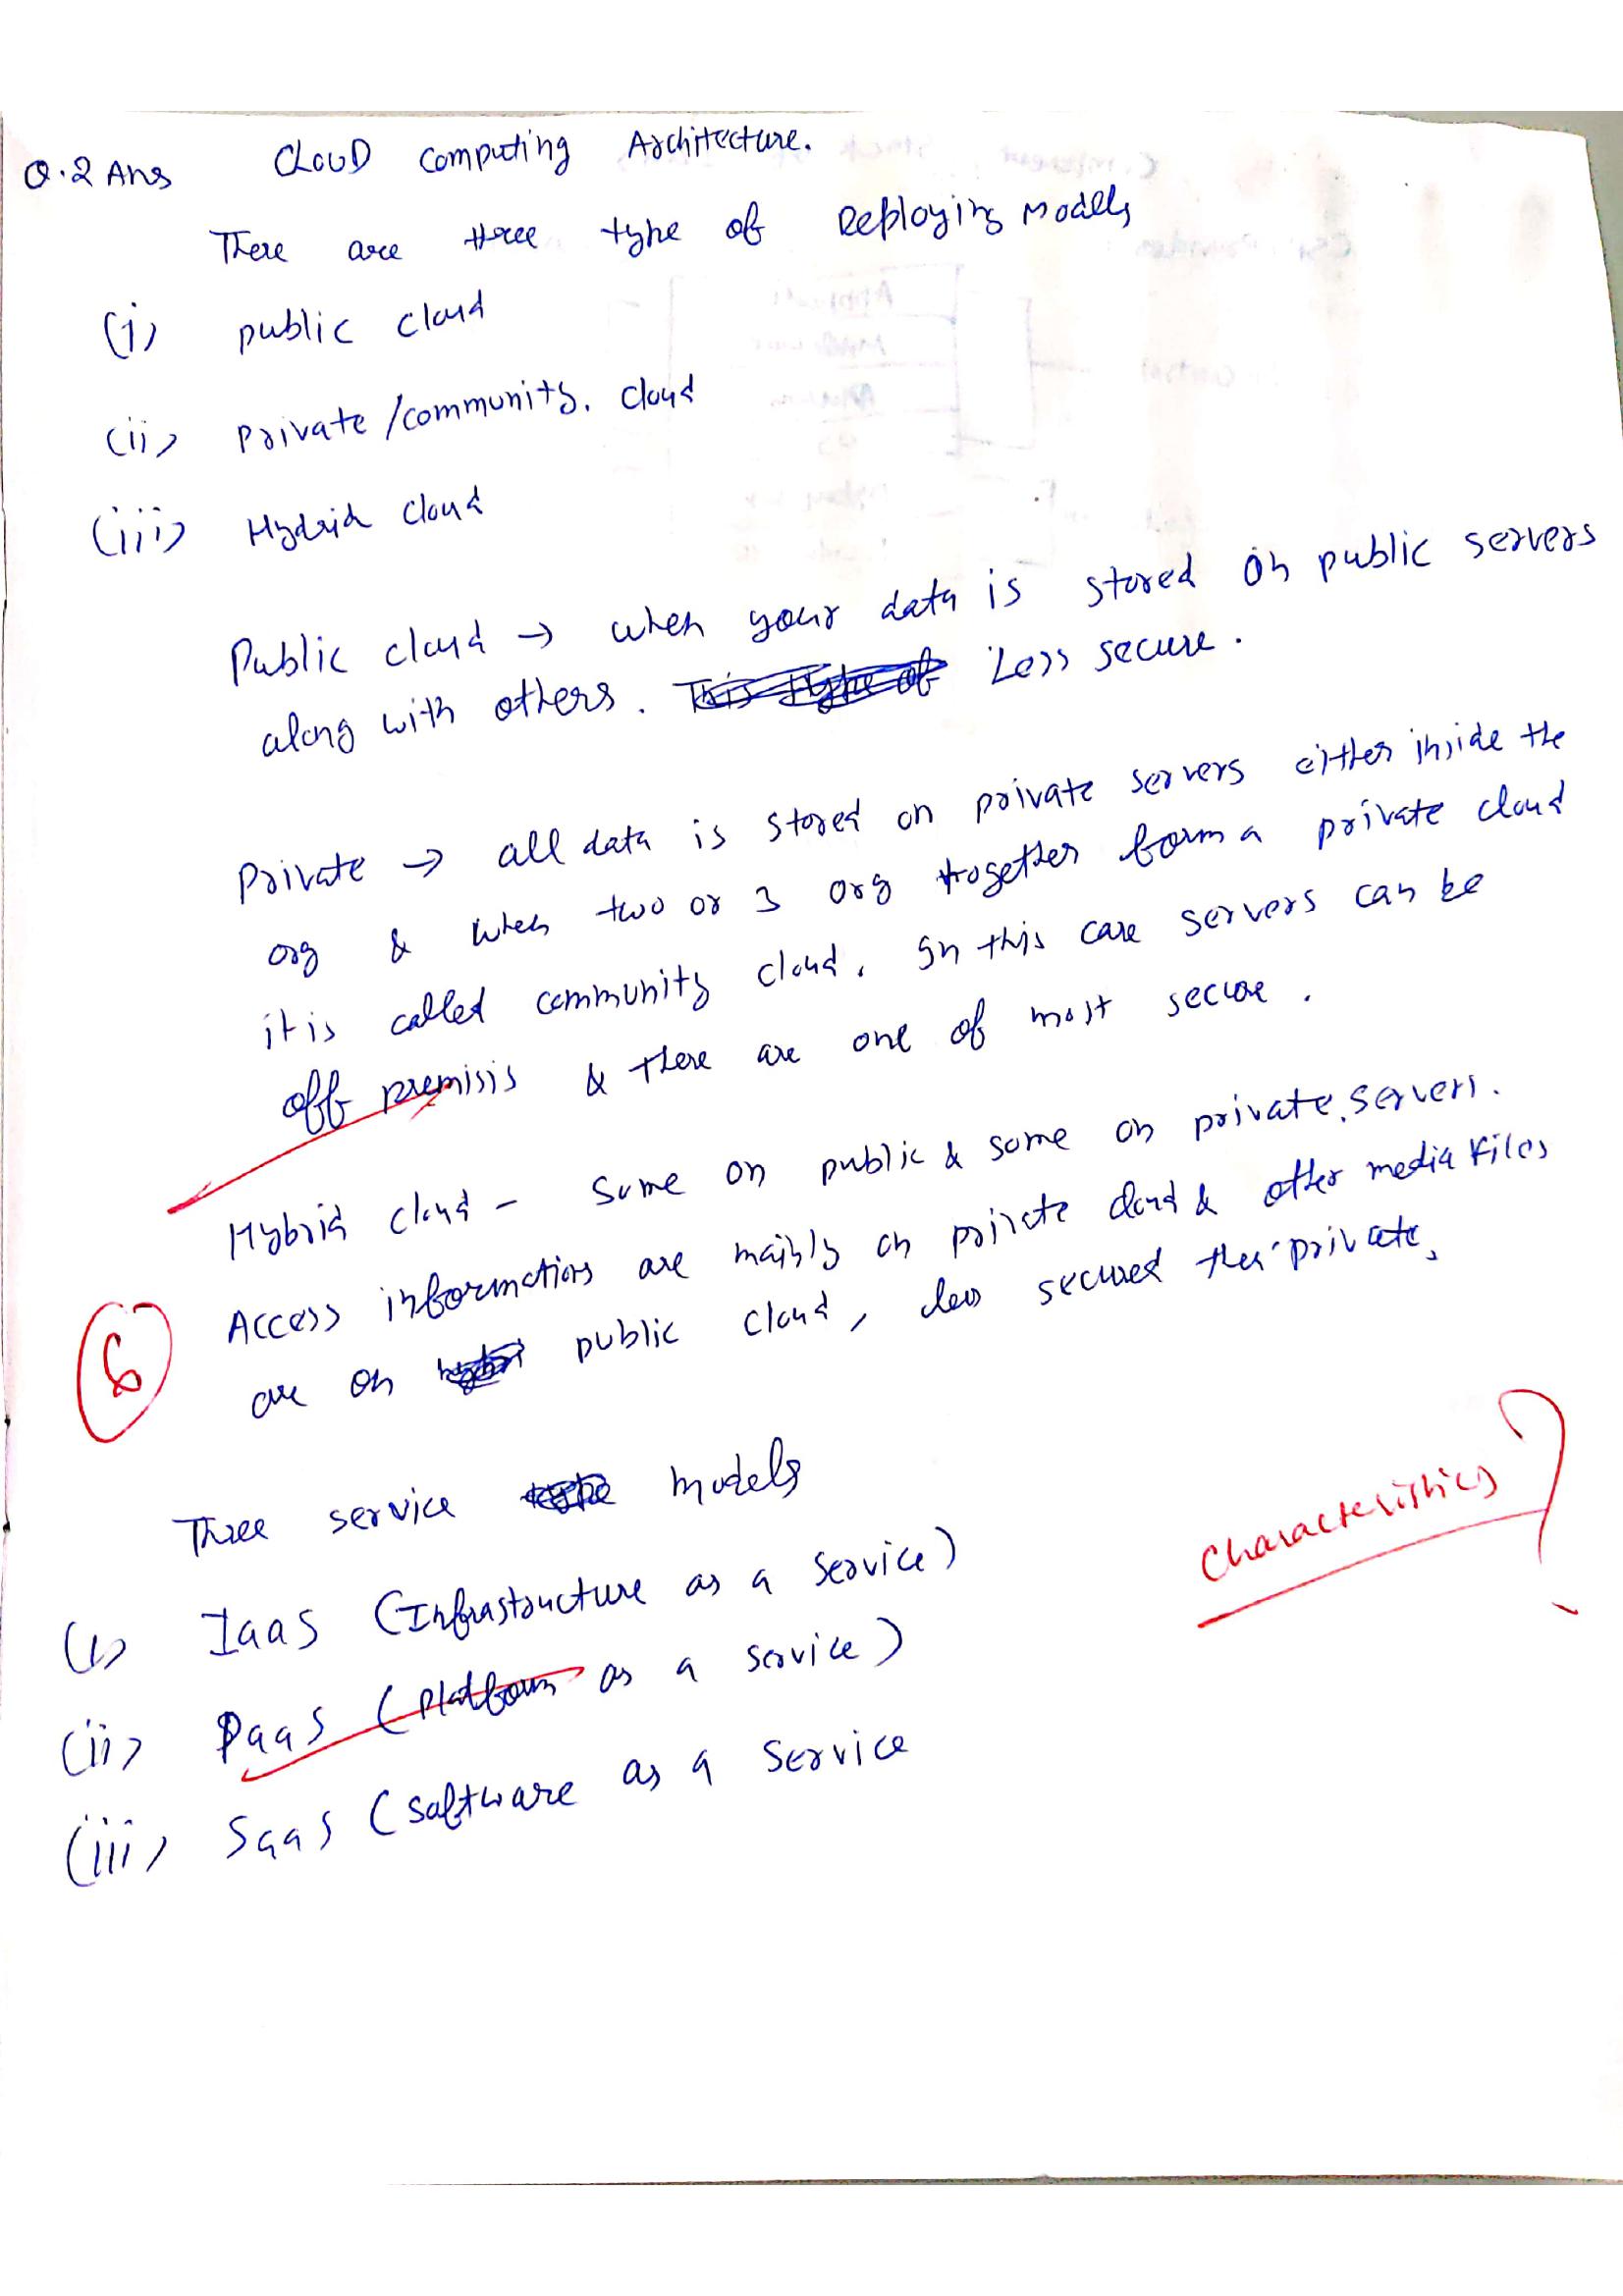 Q.2 Ans CLOUD Computing Architecture.
There are three type of Deploying Modells
(i) public cloud
(ii) Private /community. cloud
(iii) Hydrid cloud
Public cloud → when your data is stored on public servers
along with others. This type of Less secure.
Private → all data is stored on private servers either inside the
org & when two or 3 org trogether form a private cloud
it is called community cloud. In this case servers can be
off premisis & there are one of most secure.
Hybrid cloud - Some on public & some on private servers.
Access informations are mainly on private cloud & other media files
are on public cloud, less secured then private.
6
Three service type models
Characteristics ?
(i) IaaS (Infrastructure as a Service)
(ii) PaaS (Platform as a service)
(iii) SaaS (Software as a Service